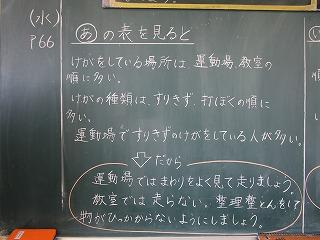 (水)
P66
あ の表を見ると
けがをしている場所は 運動場、教室の
順に多い。
けがの種類は、すりきず、打ぼくの順に
多い。
運動場ですりきずのけがをしている人が多い。
だから
運動場ではまわりをよく見て走りましょう。
教室では走らない。整理整とんをして
物がひっかからないようにしましょう。